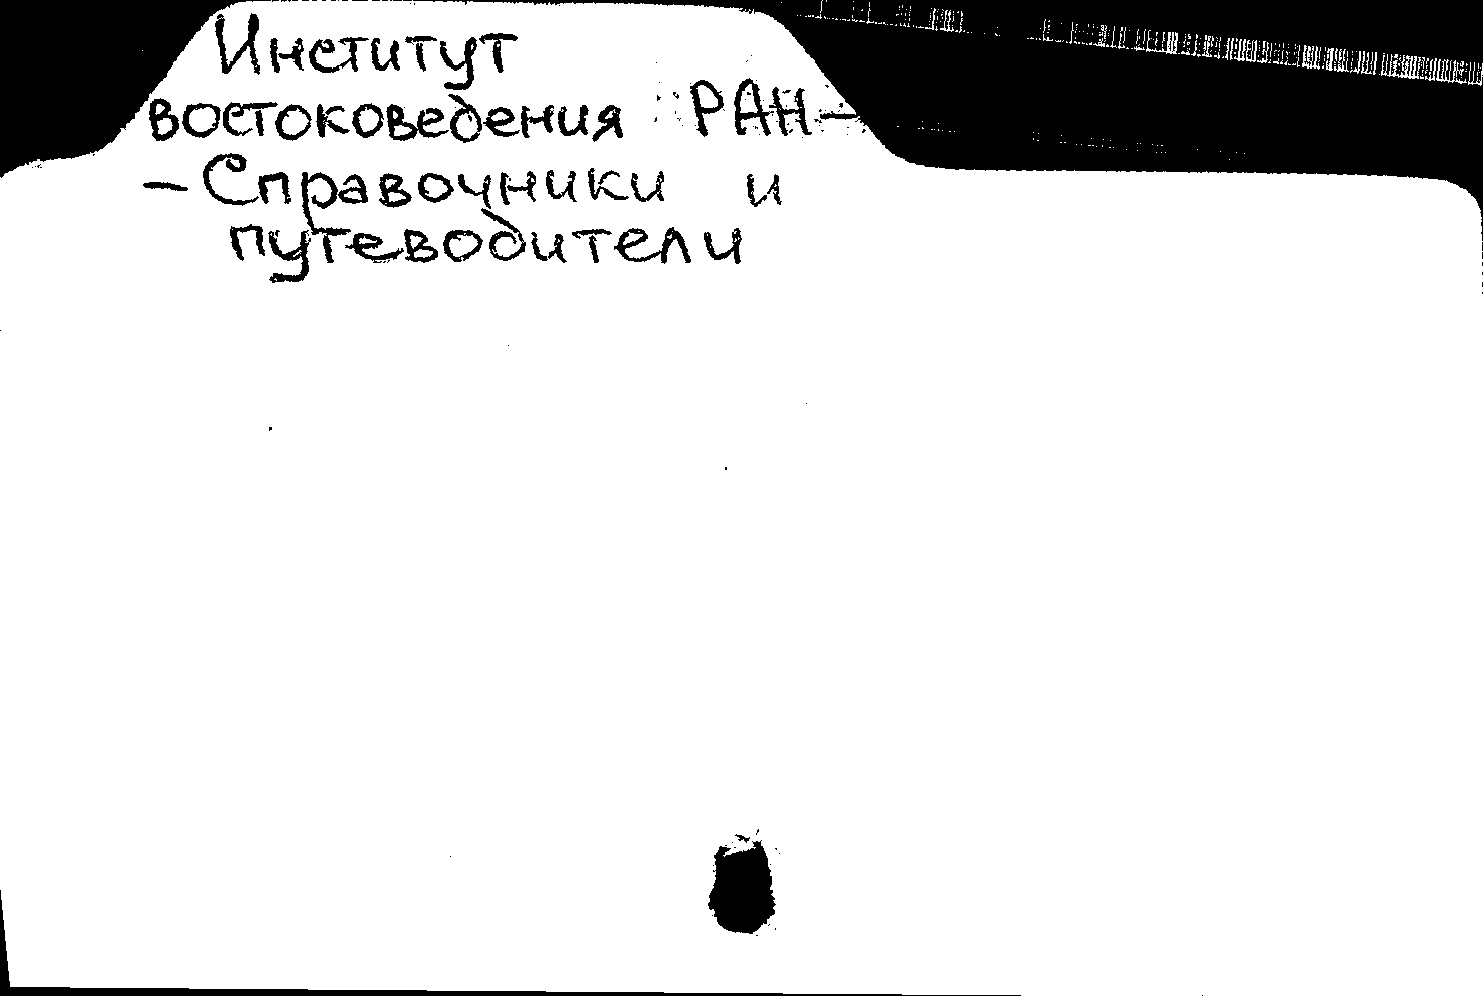 Институт
востоковедения РАН–
– Справочники и
путеводители